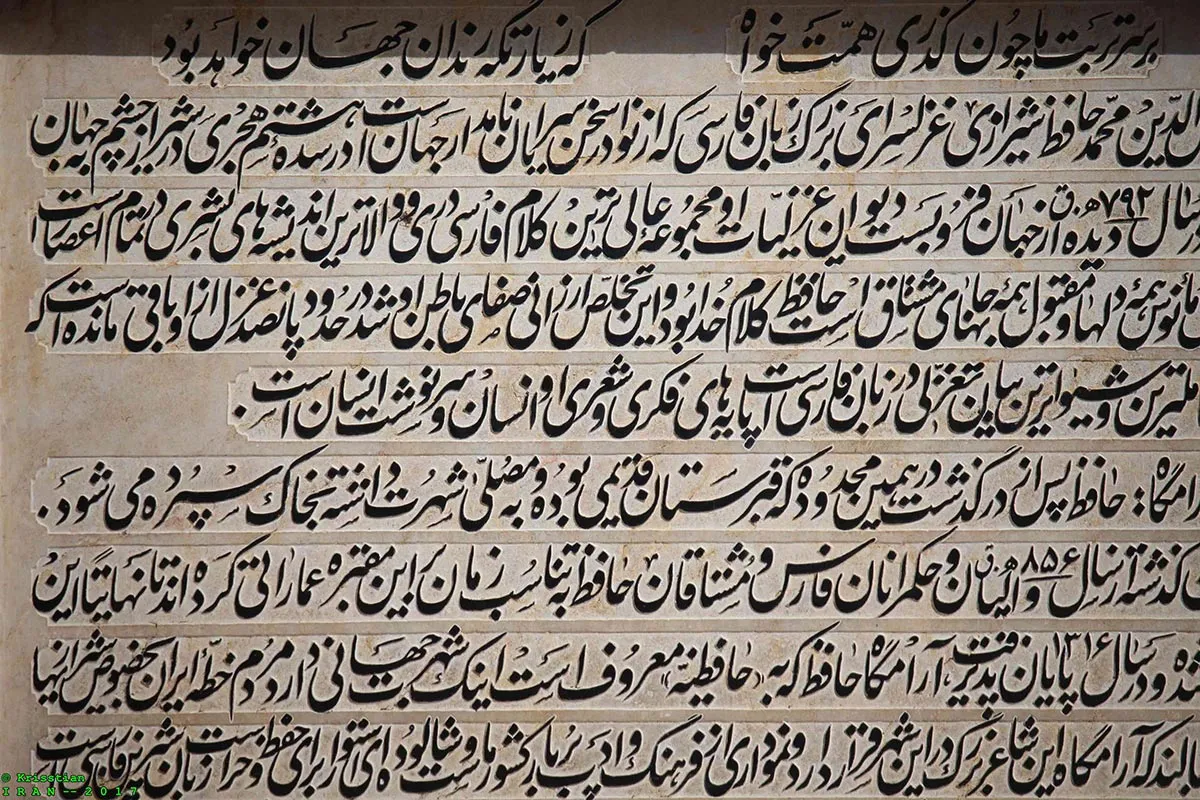 بر سر تربت ما چون گذری همّت خواه که زیارتگه رندان جهان خواهد بود
الدّین محمّد حافظ شیرازی غزلسرای بزرگ زبان فارسی که از نوادر سخن سرایان نامدار جهان است در سده هشتم هجری در شیراز چشم به جهان
سال ۷۹۲ ه.ق دیده از جهان فرو بست دیوان غزلیات او مجموعه عالی ترین کلام فارسی دری و والاترین اندیشه های بشری در تمام اعصار است
مأنوس همه دلها و مقبول همه جانهای مشتاق است حافظ کلام خدا بود و این تخلّص ارزانی صفای باطن او شد در حدود پانصد غزل از او باقی مانده است که
ترین و شیواترین بیان تغزّلی در زبان فارسی است پایه های فکری و شعری او انسان و سرنوشت انسان است.
آرامگاه: حافظ پس از درگذشت در همین محدوده که قبرستان قدیمی بوده و به مصلّی شهرت داشته بخاک سپرده می شود.
گذشته از سال ۸۵۶ ه.ق والیان و حکمرانان فارس و مشتاقان حافظ به تناسب زمان بر این مقبره عماراتی کرده اند تا نهایتا این
شده و در سال ۱۳۱۶ پایان پذیرفت، آرامگاه حافظ که به «حافظیّه» معروف است اینک شهرت جهانی دارد مردم خطّه ایران بخصوص شیرازیها
بالند که آرامگاه این شاعر بزرگ در این شهر قرار دارد و نموداری از فرهنگ و ادب پربار کشور ما و شالوده ای استوار برای حفظ و حراست زبان شیرین فارسی است
© Krisstian
IRAN -- 2017